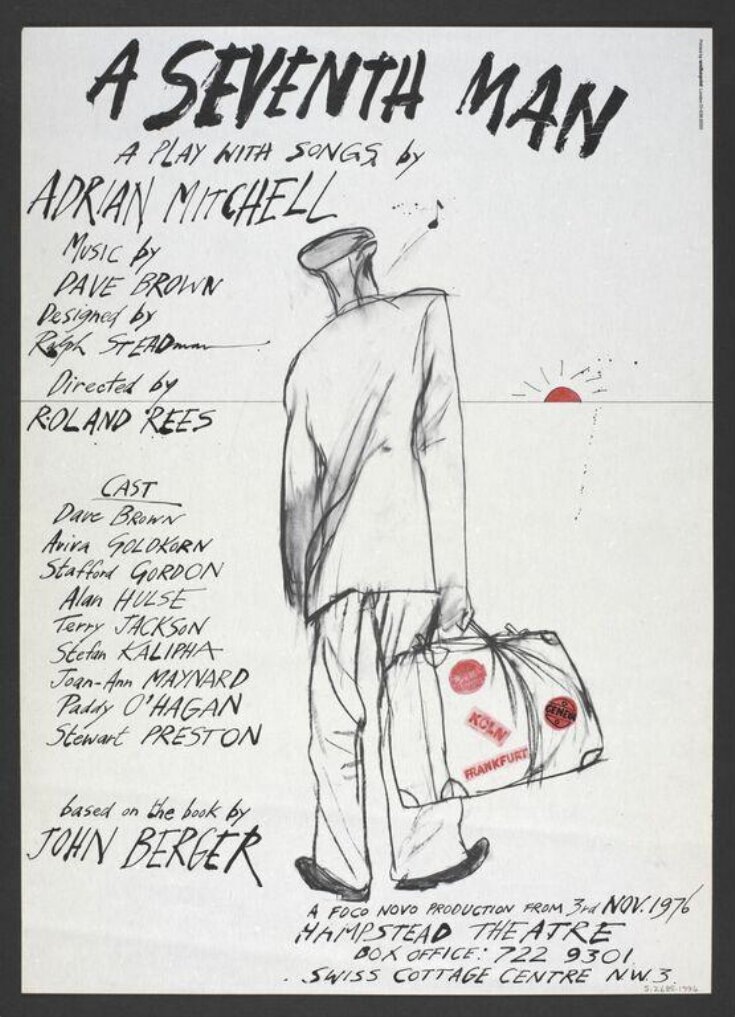 A SEVENTH MAN
A PLAY WITH SONGS by
ADRIAN MITCHELL
Music by
DAVE BROWN
Designed by
Ralph STEADman
Directed by
ROLAND REES
CAST
Dave BROWN
Aviva GOLDKORN
Stafford GORDON
Alan HULSE
Terry JACKSON
Stefan KALIPHA
Joan-Ann MAYNARD
Paddy O'HAGAN
Stewart PRESTON
KOLN
GENEVA
FRANKFURT
based on the book by
JOHN BERGER
A FOCO NOVO PRODUCTION FROM 3rd NOV. 1976
HAMPSTEAD THEATRE
BOX OFFICE: 722 9301
SWISS COTTAGE CENTRE N.W.3.
S.2685-1994